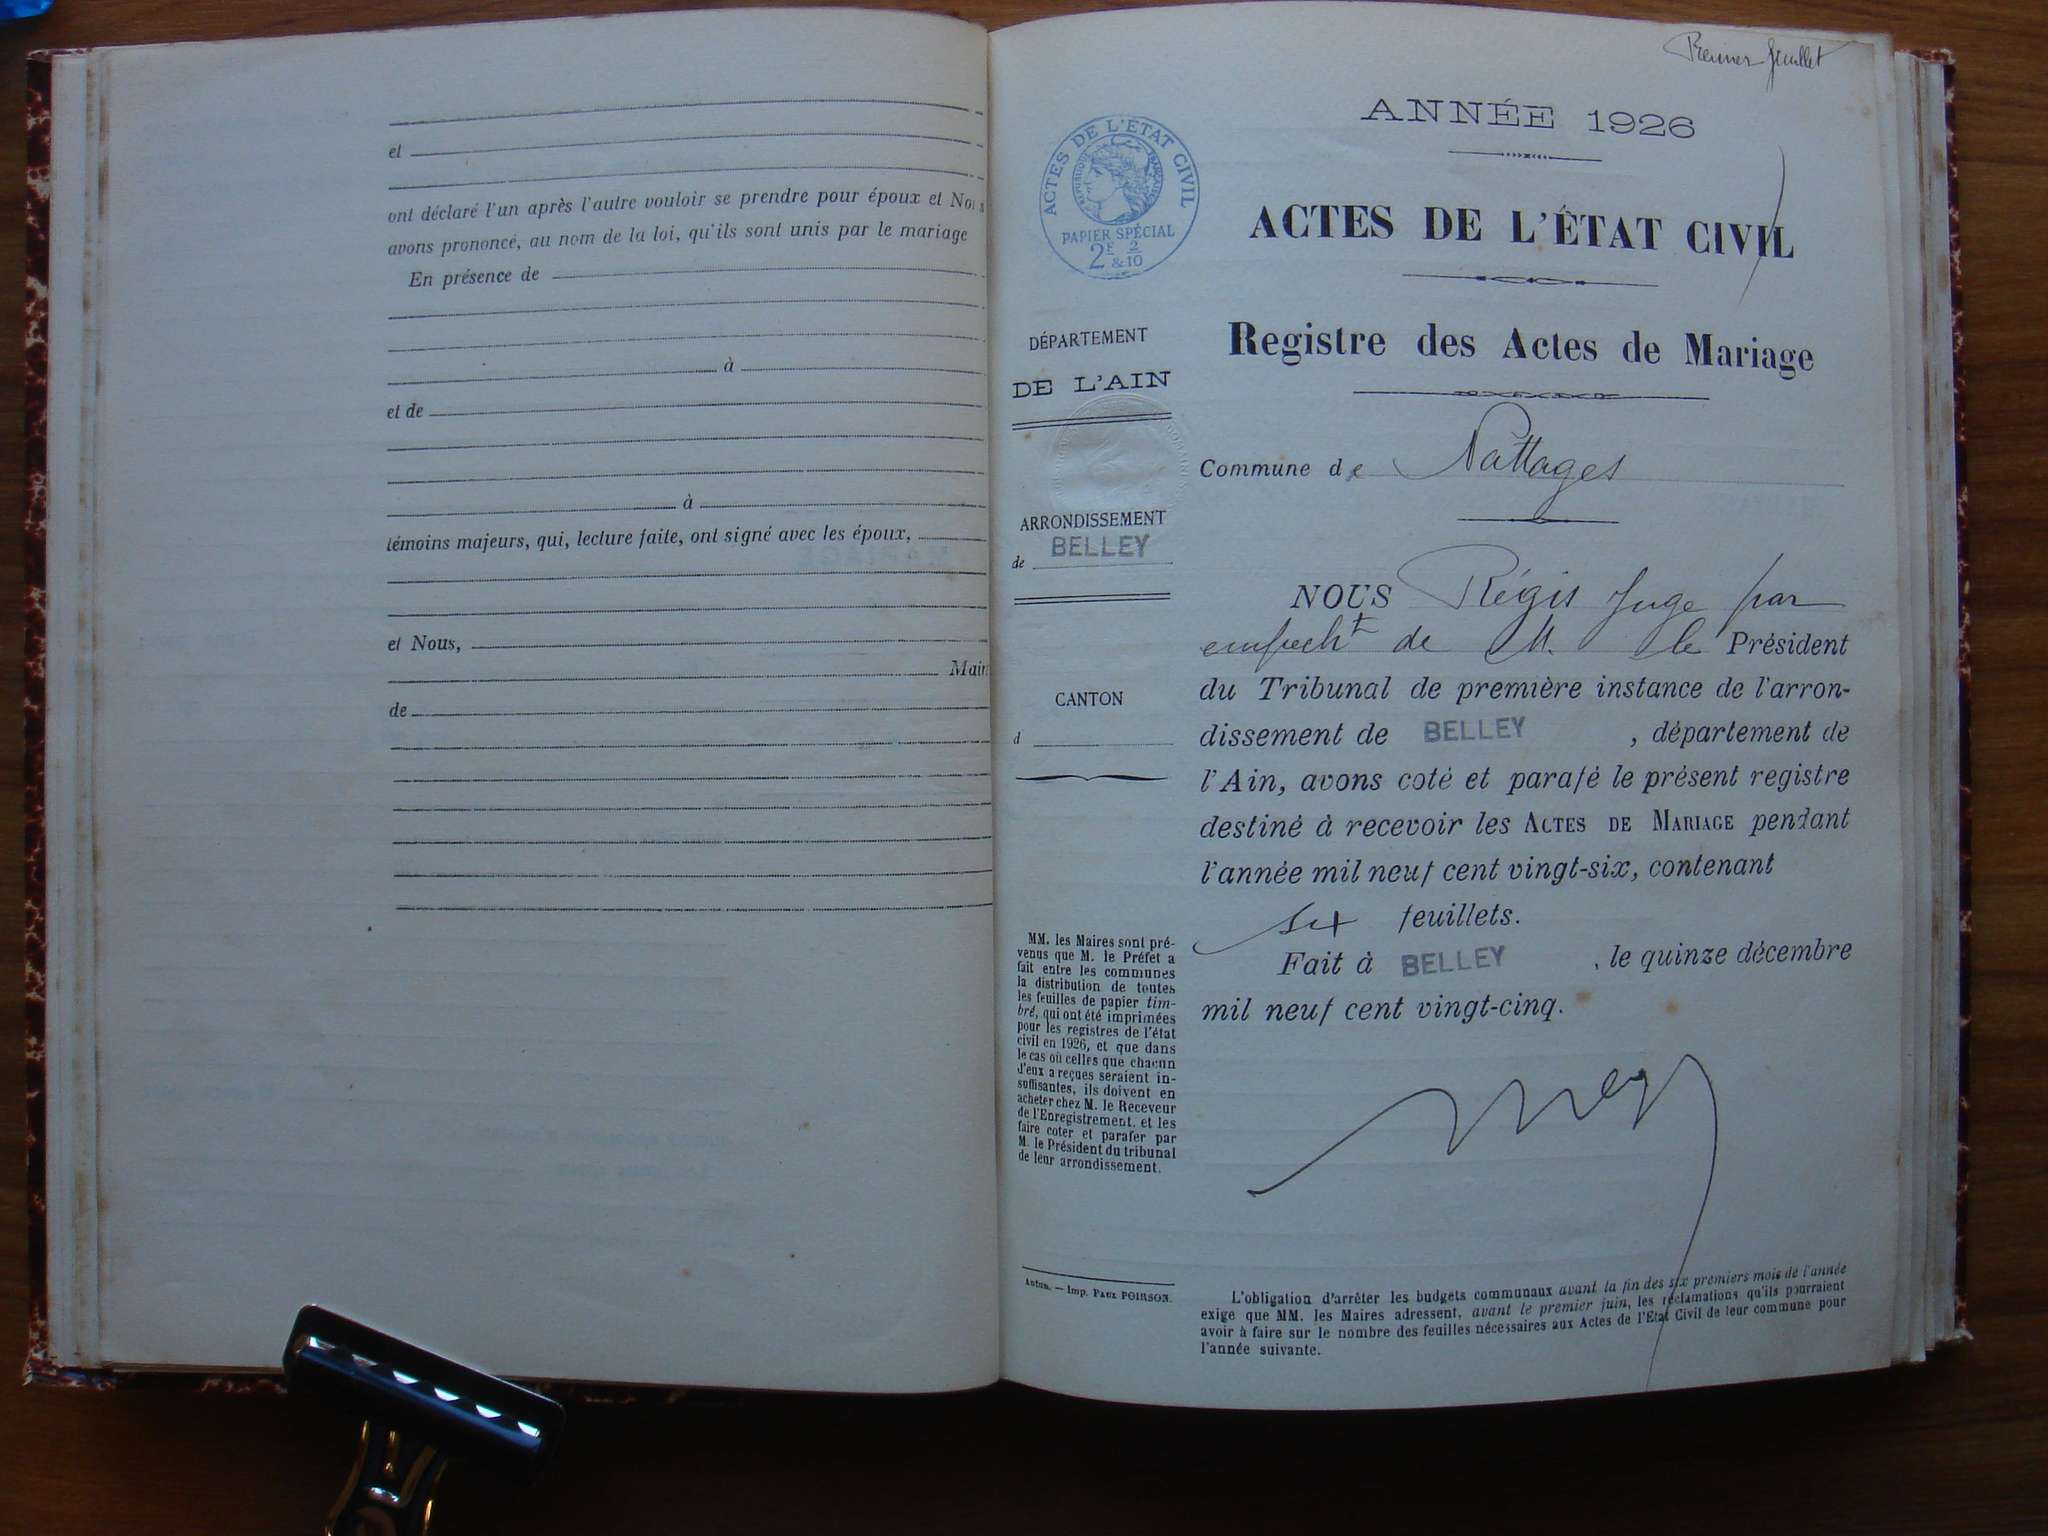 et
ont déclaré l'un après l'autre vouloir se prendre pour époux et Nous
avons prononcé, au nom de la loi, qu'ils sont unis par le mariage
En présence de
à
et de
à
témoins majeurs, qui, lecture faite, ont signé avec les époux,
et Nous,
Maire
de
Premier feuillet
ANNÉE 1926
ACTES DE L'ÉTAT CIVIL
RÉPUBLIQUE FRANÇAISE
PAPIER SPÉCIAL
2F 2
&10
ACTES DE L'ÉTAT CIVIL
Registre des Actes de Mariage
DÉPARTEMENT
DE L'AIN
Commune de Nattages
ARRONDISSEMENT
de BELLEY
CANTON
d
NOUS Régis Juge par
empecht de M. le Président
du Tribunal de première instance de l'arron-
dissement de BELLEY , département de
l'Ain, avons coté et parafé le présent registre
destiné à recevoir les ACTES DE MARIAGE pendant
l'année mil neuf cent vingt-six, contenant
six feuillets.
Fait à BELLEY , le quinze décembre
mil neuf cent vingt-cinq.
MM. les Maires sont pré-
venus que M. le Préfet a
fait entre les communes
la distribution de toutes
les feuilles de papier tim-
bré, qui ont été imprimées
pour les registres de l'état
civil en 1926, et que dans
le cas où celles que chacun
d'eux a reçues seraient in-
suffisantes, ils doivent en
acheter chez M. le Receveur
de l'Enregistrement, et les
faire coter et parafer par
M. le Président du tribunal
de leur arrondissement.
Autun. — Imp. PAUL POIRSON.
L'obligation d'arrêter les budgets communaux avant la fin des six premiers mois de l'année
exige que MM. les Maires adressent, avant le premier juin, les réclamations qu'ils pourraient
avoir à faire sur le nombre des feuilles nécessaires aux Actes de l'Etat Civil de leur commune pour
l'année suivante.